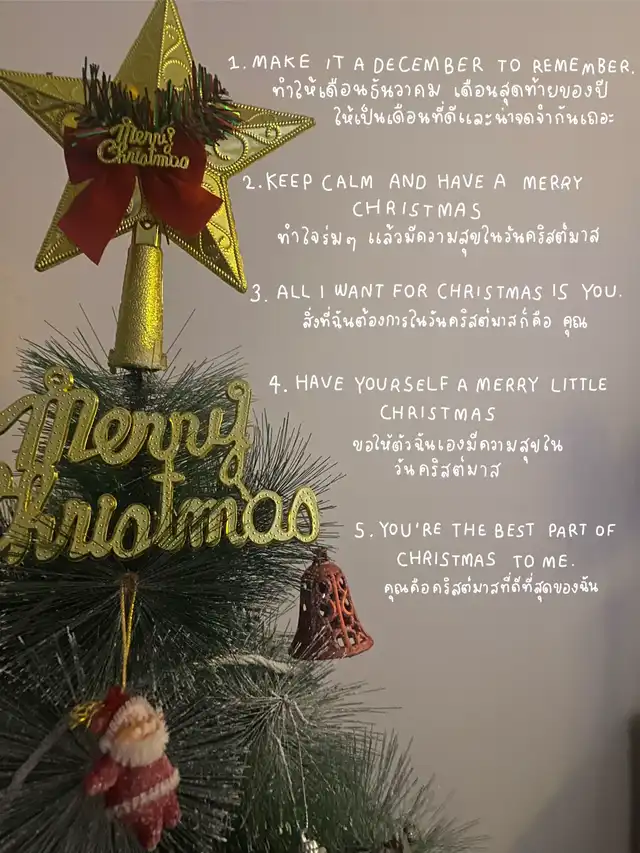 Merry
Christmas
1. MAKE IT A DECEMBER TO REMEMBER.
ทำให้เดือนธันวาคม เดือนสุดท้ายของปี
ให้เป็นเดือนที่ดีและน่าจดจำกันเถอะ
2. KEEP CALM AND HAVE A MERRY
CHRISTMAS
ทำใจร่มๆ แล้วมีความสุขในวันคริสต์มาส
3. ALL I WANT FOR CHRISTMAS IS YOU.
สิ่งที่ฉันต้องการในวันคริสต์มาสก็คือ คุณ
4. HAVE YOURSELF A MERRY LITTLE
CHRISTMAS
ขอให้ตัวฉันเองมีความสุขใน
วันคริสต์มาส
Merry
Christmas
5. YOU'RE THE BEST PART OF
CHRISTMAS TO ME.
คุณคือคริสต์มาสที่ดีที่สุดของฉัน